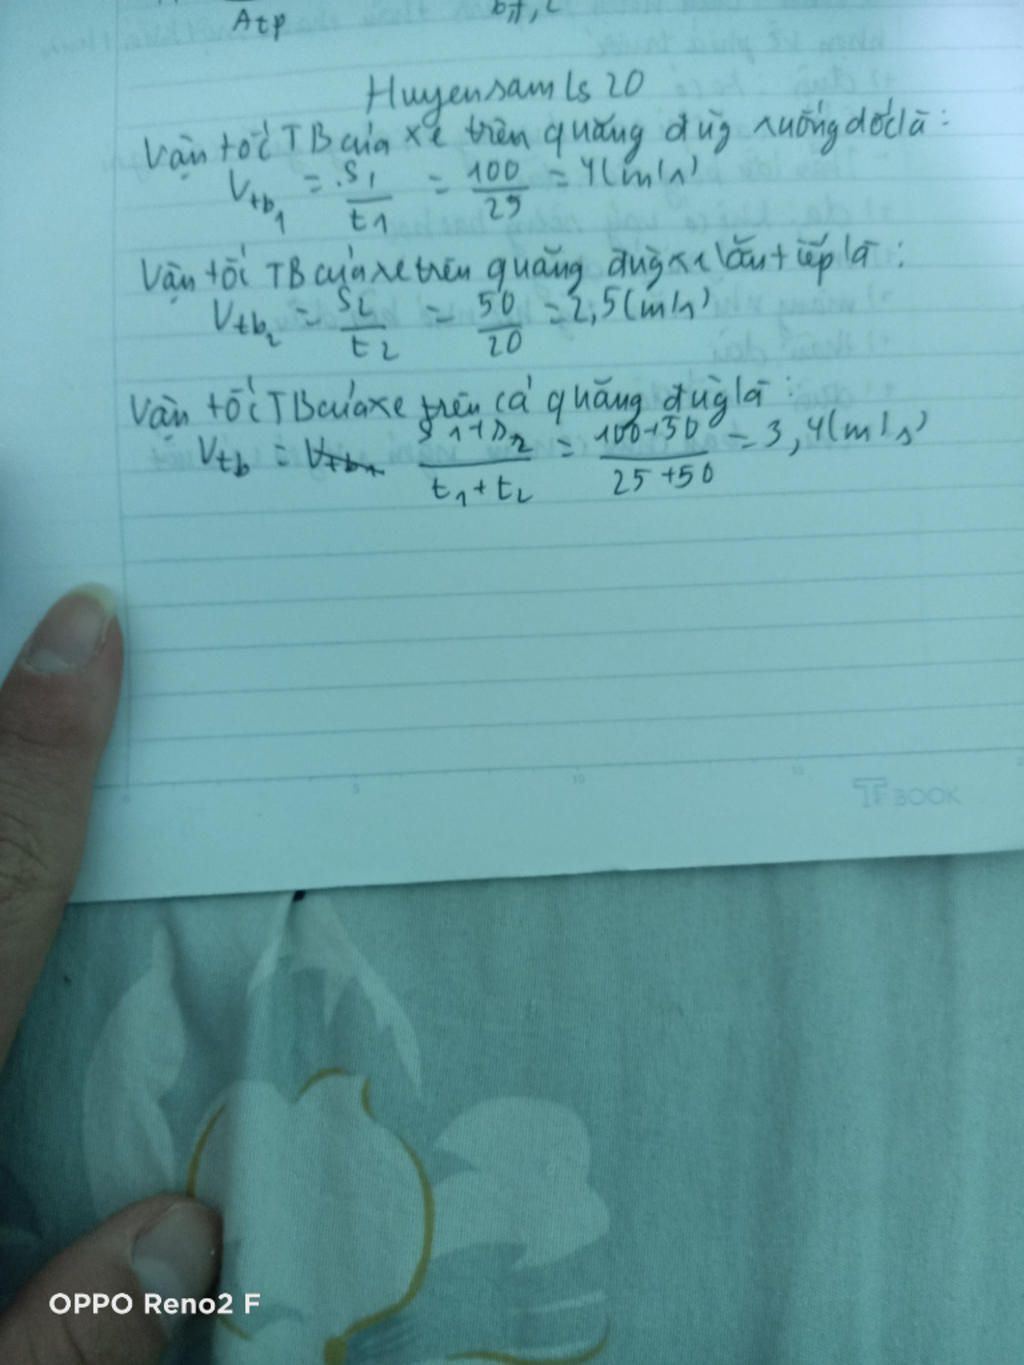 Atp
Huyensamls20
Vận tốc TB của xe trên quãng đừg xuống dốc là:
Vtb1 = S1/t1 = 100/25 = 4(m/s)
Vận tốc TB của xe trên quãng đừg xe lăn tiếp là:
Vtb2 = S2/t2 = 50/20 = 2,5(m/s)
Vận tốc TB của xe trên cả quãng đừg là:
Vtb = Vtb1 S1+S2/t1+t2 = 100+50/25+50 = 3,4(m/s)
TFBOOK
OPPO Reno2 F